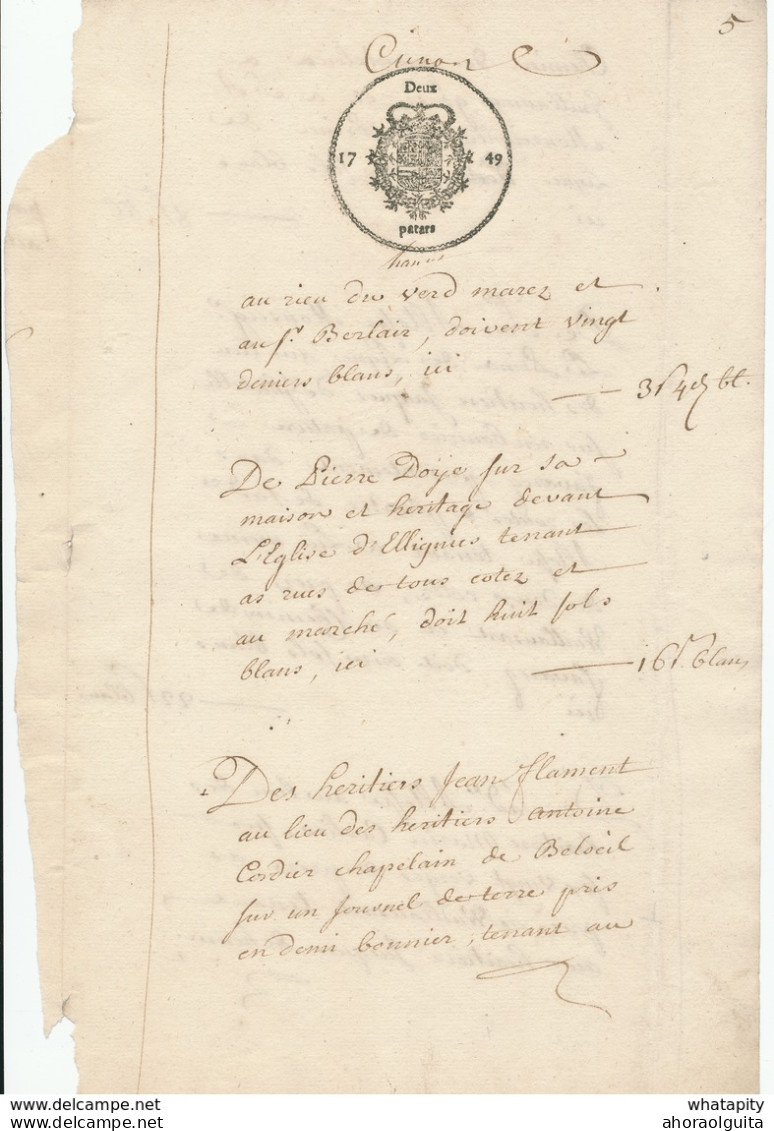 5
Deux
17 49
patars
au rieu du verd marez et
au Sr. Berlair, doivent vingt
deniers blans, ici
3s 4d bl.
De Pierre Doije sur sa
maison et heritage devant
L'Eglise d'Ellignies tenant
as rues de tous cotez et
au marché, doit huit sols
blans, ici
16s. blans
Des heritiers Jean flament
au lieu des heritiers antoine
Cordier chapelain de Beloeil
sur un Journel de terre pris
en demi bonnier, tenant au
www.delcampe.net
whatapity
www.delcampe.net
ahoraolguita